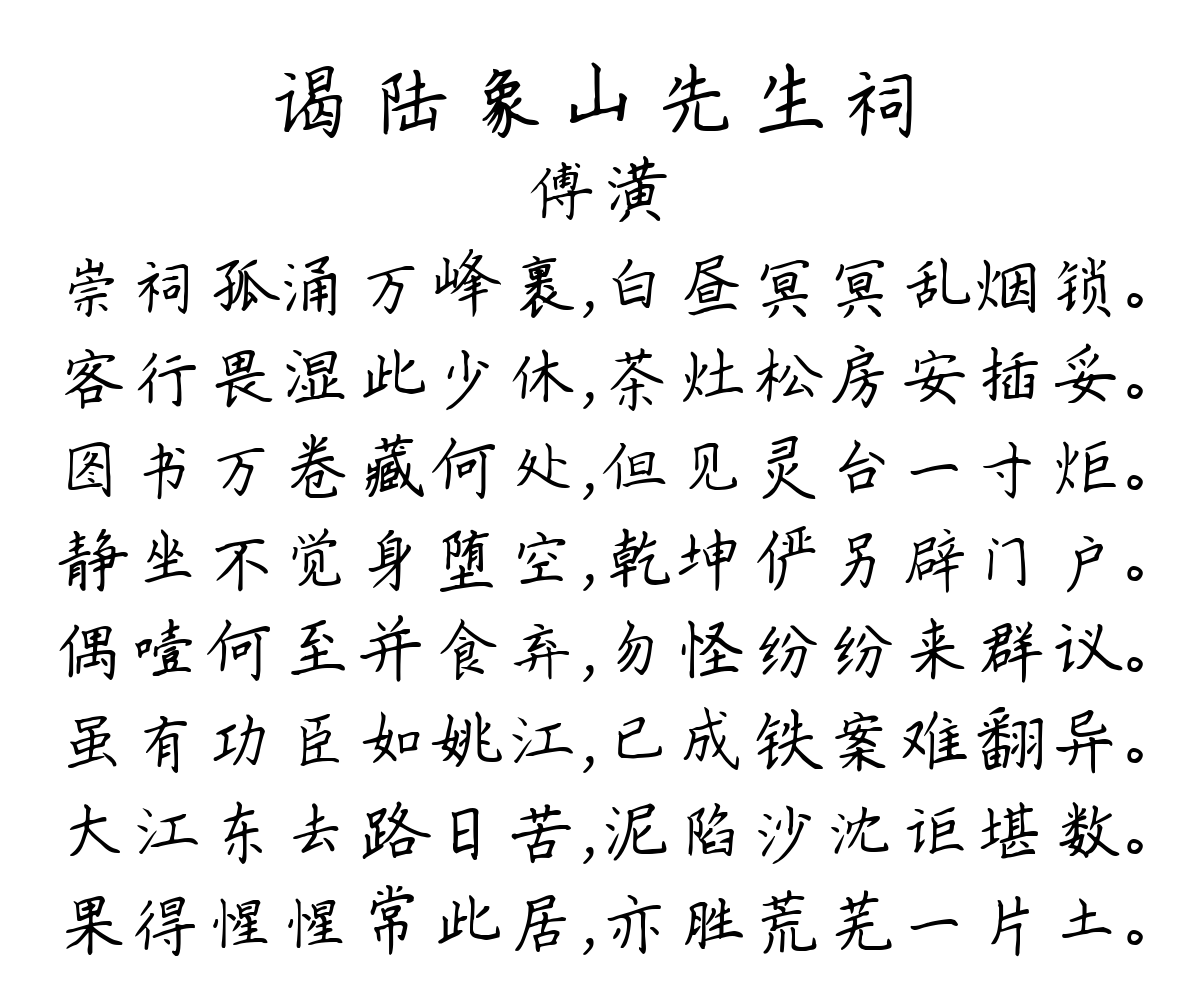 谒陆象山先生祠
傅潢
崇祠孤涌万峰裹,白昼冥冥乱烟锁。
客行畏湿此少休,茶灶松房安插妥。
图书万卷藏何处,但见灵台一寸炬。
静坐不觉身堕空,乾坤俨另辟门户。
偶噎何至并食弃,勿怪纷纷来群议。
虽有功臣如姚江,已成铁案难翻异。
大江东去路日苦,泥陷沙沈讵堪数。
果得惺惺常此居,亦胜荒芜一片土。